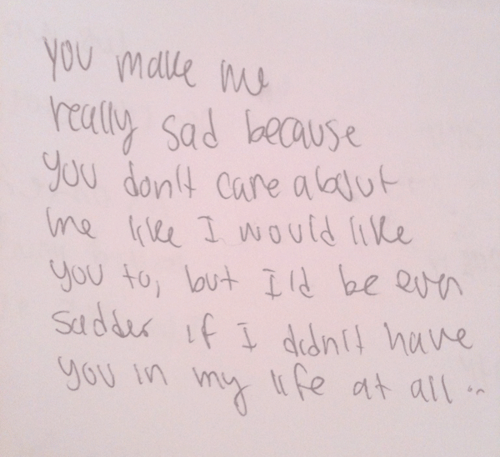 you make me
really sad because
you don't care about
me like I would like
you to, but I'd be even
sadder if I didn't have
you in my life at all..